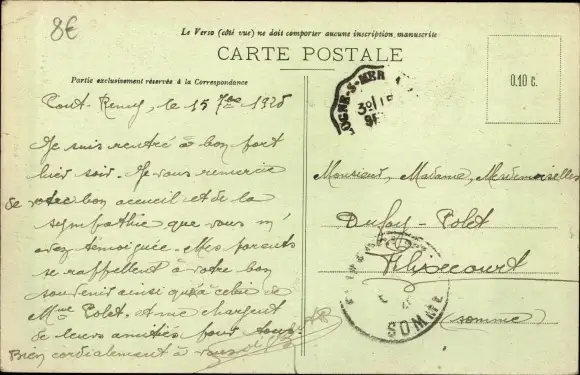 8€
Le Verso (côté vue) ne doit comporter aucune inscription manuscrite
CARTE POSTALE
Partie exclusivement réservée à la Correspondance
Pont-Remy, le 15 7bre 1928
Je suis rentré à bon port
hier soir. Je vous remercie
de votre bon accueil et de la
sympathie que vous m'
avez témoignée. Mes parents
se rappellent à votre bon
souvenir ainsi qu'à celui de
Mme Polet, et me chargent
de leurs amitiés pour tous.
Bien cordialement à vous
OGNE-S-MER
30
0.10 c.
Monsieur, Madame, Mesdemoiselles
Dufay-Polet
Flixecourt
(Somme)
SOMME